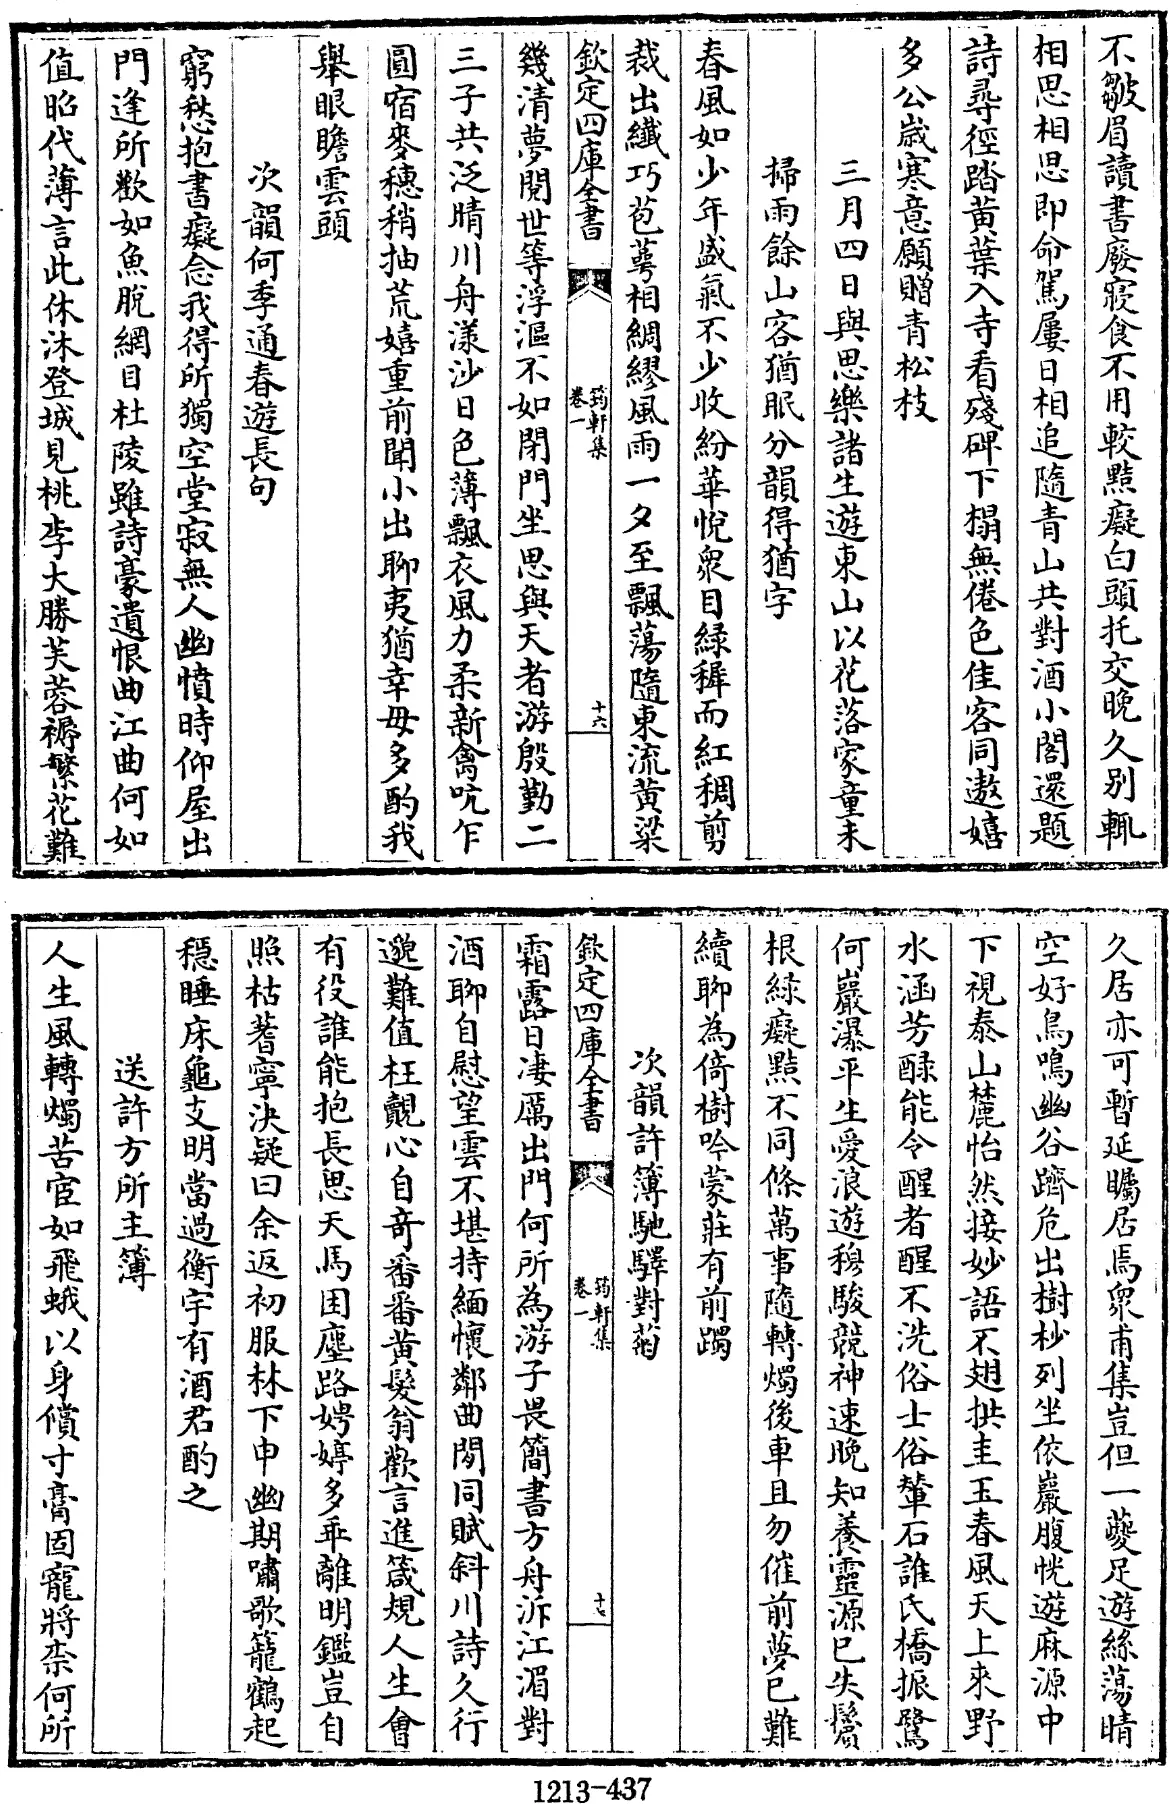 不皺眉讀書廢寢食不用較黠癡白頭托交晚久别輒
相思相思即命駕屢日相追隨青山共對酒小閣還題
詩尋徑踏黄葉入寺看殘碑下榻無倦色佳客同遨嬉
多公歲寒意願贈青松枝
三月四日與思樂諸生遊東山以花落家童未
掃雨餘山客猶眠分韻得猶字
春風如少年盛氣不少收紛華悅衆目緑穉而紅稠剪
裁出纎巧苞萼相綢繆風雨一夕至飄蕩隨東流黄粱
欽定四庫全書
筠軒集
卷一
十六
幾清夢閱世等浮漚不如閉門坐思與天者游殷勤二
三子共泛晴川舟漾沙日色薄飄衣風力柔新禽吭乍
圓宿麥穗稍抽荒嬉重前聞小出聊夷猶幸毋多酌我
舉眼瞻雲頭
次韻何季通春遊長句
窮愁抱書癡念我得所獨空堂寂無人幽憤時仰屋出
門逢所歡如魚脫網目杜陵雖詩豪遺恨曲江曲何如
值昭代薄言此休沐登城見桃李大勝芙蓉褥繁花難
久居亦可暫延矚居焉衆甫集豈但一夔足遊絲蕩晴
空好鳥鳴幽谷躋危出樹杪列坐依巖腹恍遊麻源中
下視泰山麓怡然接妙語不翅拱圭玉春風天上來野
水涵芳醁能令醒者醒不洗俗士俗輦石誰氏橋振鷺
何巖瀑平生愛浪遊穆駿競神速晚知養靈源已失鬢
根緑癡黠不同條萬事隨轉燭後車且勿催前夢已難
續聊為倚樹吟蒙莊有前躅
次韻許簿馳驛對菊
欽定四庫全書
筠軒集
卷一
十七
霜露日凄厲出門何所為游子畏簡書方舟泝江湄對
酒聊自慰望雲不堪持緬懷鄰曲閒同賦斜川詩久行
邈難值枉覿心自竒番番黄髮翁歡言進箴規人生會
有役誰能抱長思天馬困塵路娉婷多乖離明鑑豈自
照枯蓍寧決疑曰余返初服林下申幽期嘯歌籠鶴起
穩睡床龜支明當過衡宇有酒君酌之
送許方所主簿
人生風轉燭苦宦如飛蛾以身償寸膏固寵將柰何所
1213-437